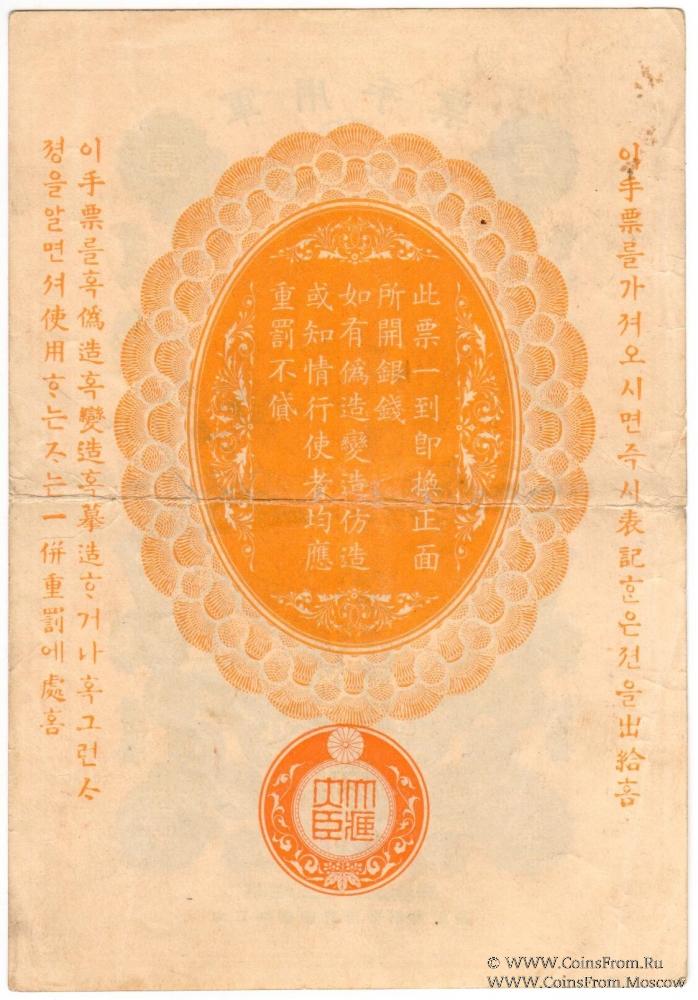 이手票를가져오시면즉시表記ᄒᆞᆫ은젼을出給홈
此票一到即換正面
所開銀錢
如有僞造變造仿造
或知情行使者均應
重罰不貸
이手票를혹僞造혹變造혹摹造ᄒᆞ거나혹그런ᄉᆞ
졍을알면셔使用ᄒᆞ는ᄌᆞ는一併重罰에處홈
大藏
大臣
© WWW.COINSFROM.RU
WWW.COINSFROM.MOSCOW